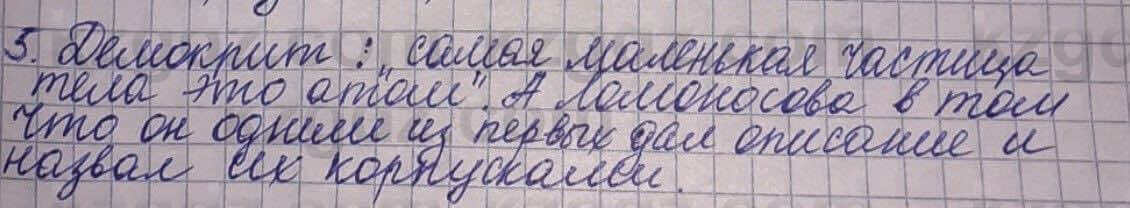 5. Демокрит : „самая маленькая частица
тела это атом". А Ломоносова в том
что он одними из первых дал описание и
назвал их корпускалеи.